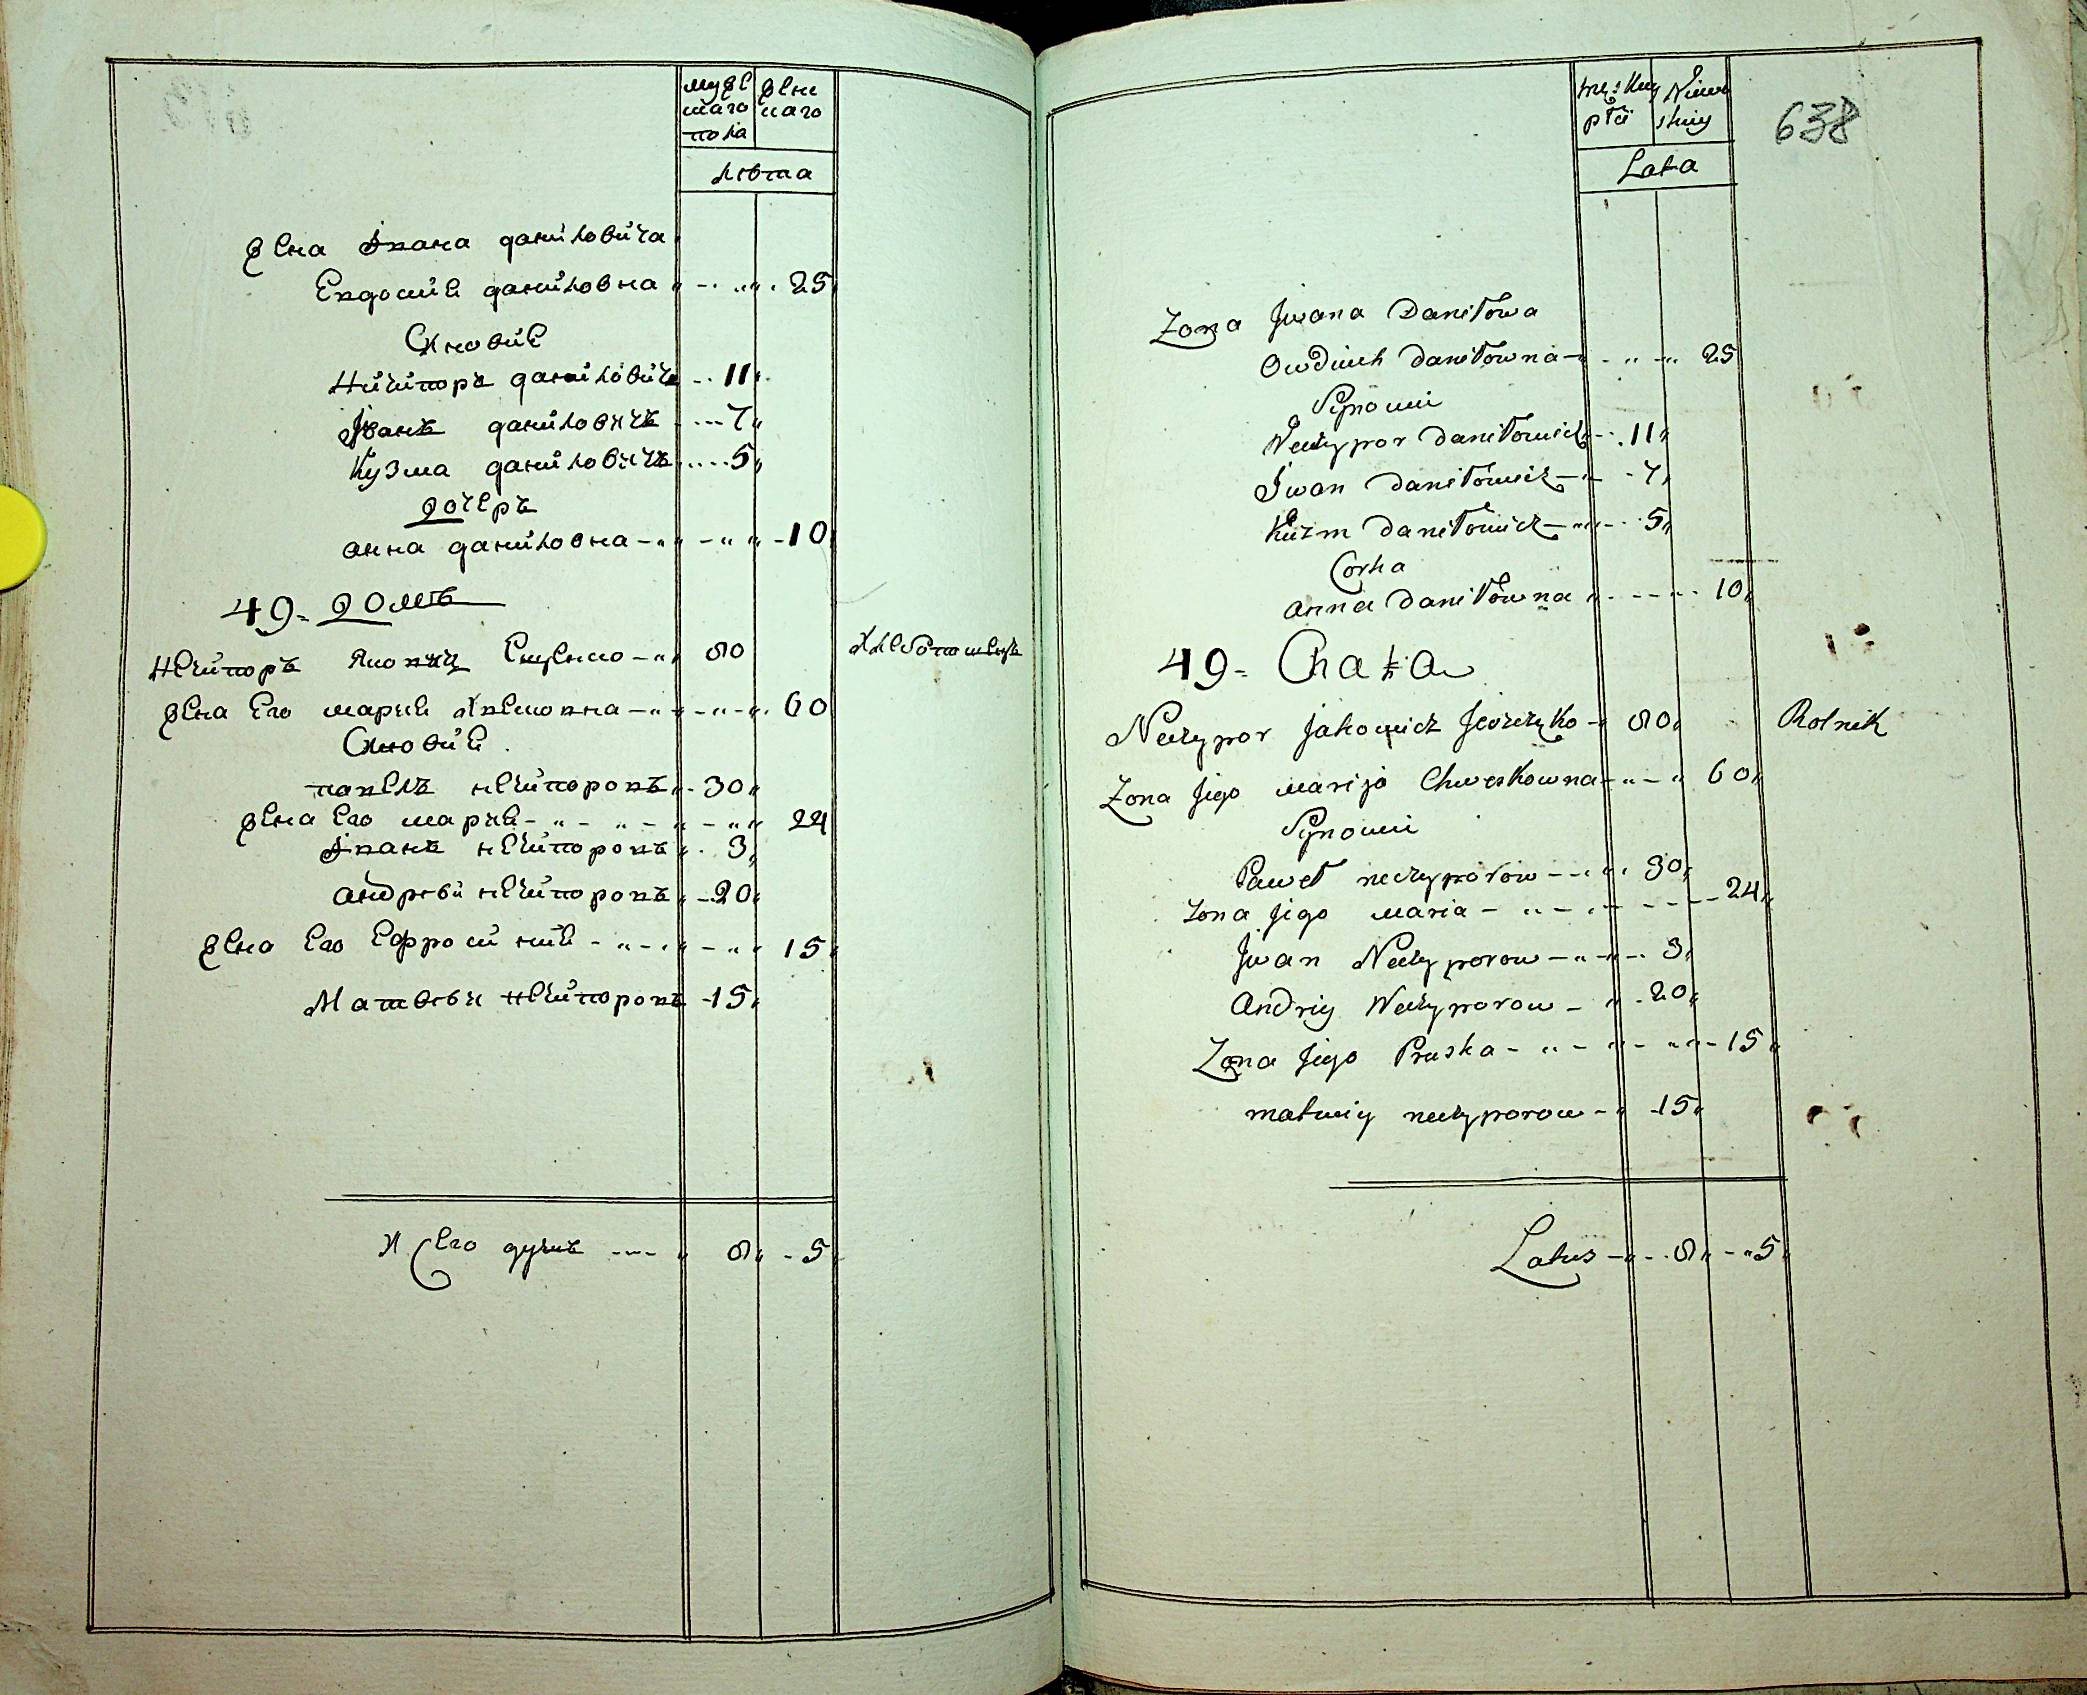 мужескаго пола
женскаго
Лѣта
жена Ивана Даниловича
Евдокия Даниловна 25
Синовия
Ничипоръ Даниловичъ 11
Иванъ Даниловичъ 7
Кузма Даниловичъ 5
дочеръ
анна Даниловна 10
49 - домъ
Нечипоръ 80
жена Его мария 60
Синовия
павелъ нечипоровъ 30
жена Его мария 24
Иванъ нечипоровъ 3
андрѣй нечипоровъ 20
жена Его Ефросиния 15
Матвѣй нечипоровъ 15
8 5
638
płci
Lata
Zona Jwana Daniłowa
Owdiuch Daniłowna 25
Synowie
Neczypor Daniłowicz 11
Jwan Daniłowicz 7
Kuzm Daniłowicz 5
Corka
anna Daniłowna 10
49 - Chata
Neczypor Jakowicz 80 Rolnik
Zona Jego marija Chweskowna 60
Synowie
Paweł neczyporow 30
zona Jego maria 24
Jwan Neczyporow 3
Andriy Neczyporow 20
Zona Jego Pruska 15
matwiy neczyporow 15
Latus 8 5